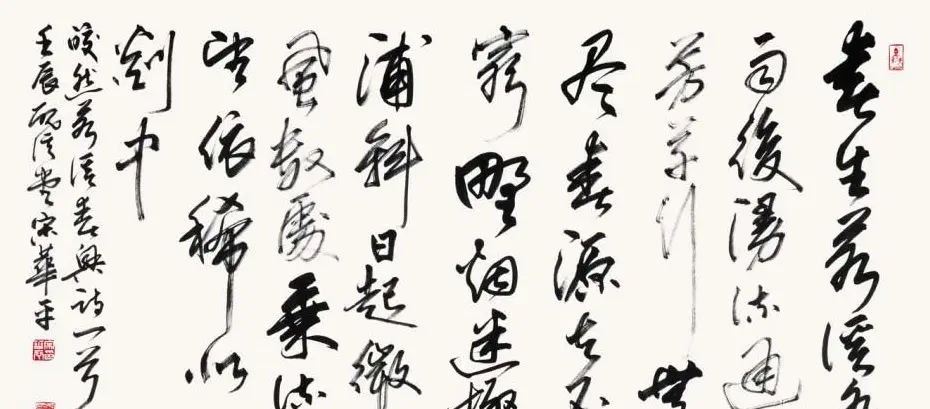 春生若溪水
雨後漫流通
芳草行無
尽春源去不
窮野烟迷極
浦斜日起微
風數處乘流
望依稀似
剡中
皎然若溪春興詩一首
壬辰 堂宋華平